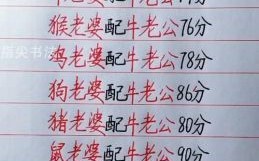 猴老婆配牛老公76分
鸡老婆配牛老公78分
指尖书法
狗老婆配牛老公86分
猪老婆配牛老公80分
鼠老婆配牛老公90分